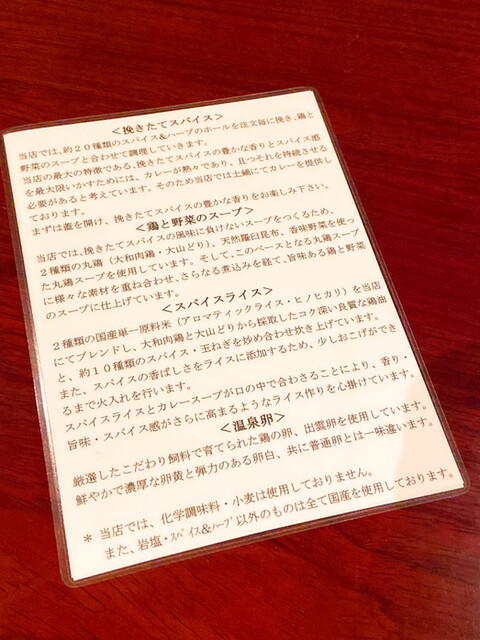 ＜挽きたてスパイス＞
当店では、約２０種類のスパイス&ハーブのホールを注文毎に挽き、鶏と
野菜のスープと合わせて調理していきます。
当店の最大の特徴である、挽きたてスパイスの豊かな香りとスパイス感
を最大限いかすためには、カレーが熱々であり、且つそれを持続させる
必要があると考えています。そのため当店では土鍋にてカレーを提供し
ております。
まずは蓋を開け、挽きたてスパイスの豊かな香りをお楽しみ下さい。
＜鶏と野菜のスープ＞
当店では、挽きたてスパイスの風味に負けないスープをつくるため、
２種類の丸鶏（大和肉鶏・大山どり）、天然羅臼昆布、香味野菜を使っ
た丸鶏スープを使用しています。そして、このベースとなる丸鶏スープ
に様々な素材を重ね合わせ、さらなる煮込みを経て、旨味ある鶏と野菜
のスープに仕上げています。
＜スパイスライス＞
２種類の国産単一原料米（アロマティックライス・ヒノヒカリ）を当店
にてブレンドし、大和肉鶏と大山どりから採取したコク深い良質な鶏油
と、約１０種類のスパイス・玉ねぎを炒め合わせ炊き上げています。
また、スパイスの香ばしさをライスに添加するため、少しおこげができ
るまで火入れを行います。
スパイスライスとカレースープが口の中で合わさることにより、香り・
旨味・スパイス感がさらに高まるようなライス作りを心掛けています。
＜温泉卵＞
厳選したこだわり飼料で育てられた鶏の卵、出雲卵を使用しています。
鮮やかで濃厚な卵黄と弾力のある卵白、共に普通卵とは一味違います。
＊ 当店では、化学調味料・小麦は使用しておりません。
また、岩塩・ｽﾊﾟｲｽ&ﾊｰﾌﾞ以外のものは全て国産を使用しております。